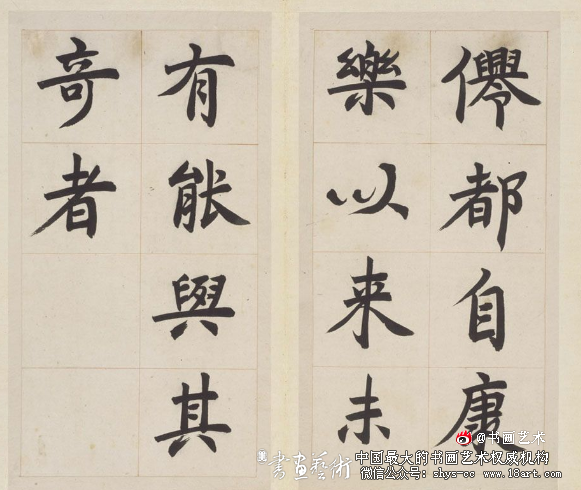 僊都自康
樂以来未
有能與其
奇者
@书画艺术
書畫藝術
中国最大的书画艺术权威机构
微信公众号：shys-cc www.18art.com